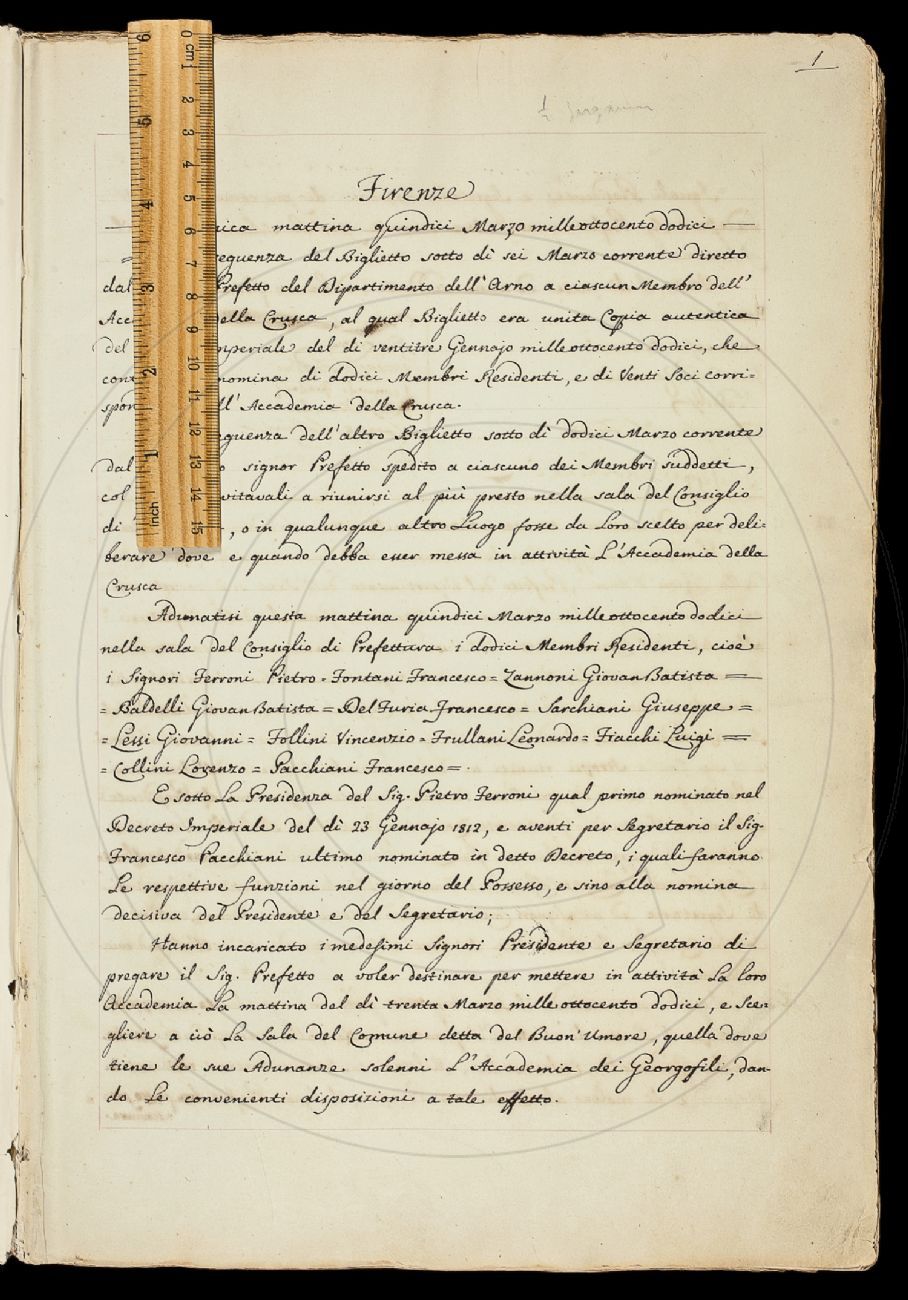 1
Firenze
mattina quindici Marzo mille ottocento dodici —
= del Biglietto sotto dì sei Marzo corrente diretto
dal Prefetto del Dipartimento dell' Arno a ciascun Membro dell'
della Crusca, al qual Biglietto era unita Copia autentica
del del dì ventitre Gennajo mille ottocento dodici, che
nomina di dodici Membri Residenti, e di Venti Soci corri=
Accademia della Crusca.
dell'altro Biglietto sotto dì dodici Marzo corrente
dal signor Prefetto spedito a ciascuno dei Membri suddetti,
col a riunirsi al più presto nella sala del Consiglio
di , o in qualunque altro Luogo fosse da Loro scelto per deli=
berare dove e quando debba esser messa in attività L'Accademia della
Crusca
Adunatisi questa mattina quindici Marzo mille ottocento dodici
nella sala del Consiglio di Prefettura i dodici Membri Residenti, cioè
i Signori Ferroni Pietro = Fontani Francesco = Zannoni Giovan Batista =
= Baldelli Giovan Batista = Del Furia Francesco = Sarchiani Giuseppe =
= Lessi Giovanni = Follini Vincenzio = Frullani Leonardo = Fiacchi Luigi =
= Collini Lorenzo = Pacchiani Francesco = .
E sotto La Presidenza del Sig. Pietro Ferroni qual primo nominato nel
Decreto Imperiale del dì 23 Gennajo 1812, e aventi per Segretario il Sig.
Francesco Pacchiani ultimo nominato in detto Decreto, i quali faranno
Le respettive funzioni nel giorno del Possesso, e sino alla nomina
decisiva del Presidente e del Segretario;
Hanno incaricato i medesimi Signori Presidente e Segretario di
pregare il Sig. Prefetto a voler destinare per mettere in attività La loro
Accademia La mattina del dì trenta Marzo mille ottocento dodici, e Sce=
gliere a ciò La Sala del Comune detta del Buon' Umore, quella dove
tiene le sue Adunanze solenni L'Accademia dei Georgofili, dan=
do Le convenienti disposizioni a tale effetto.
0 cm 1 2 3 4 5 6 7 8 9 10 11 12 13 14 15
6 5 4 3 2 1 inch